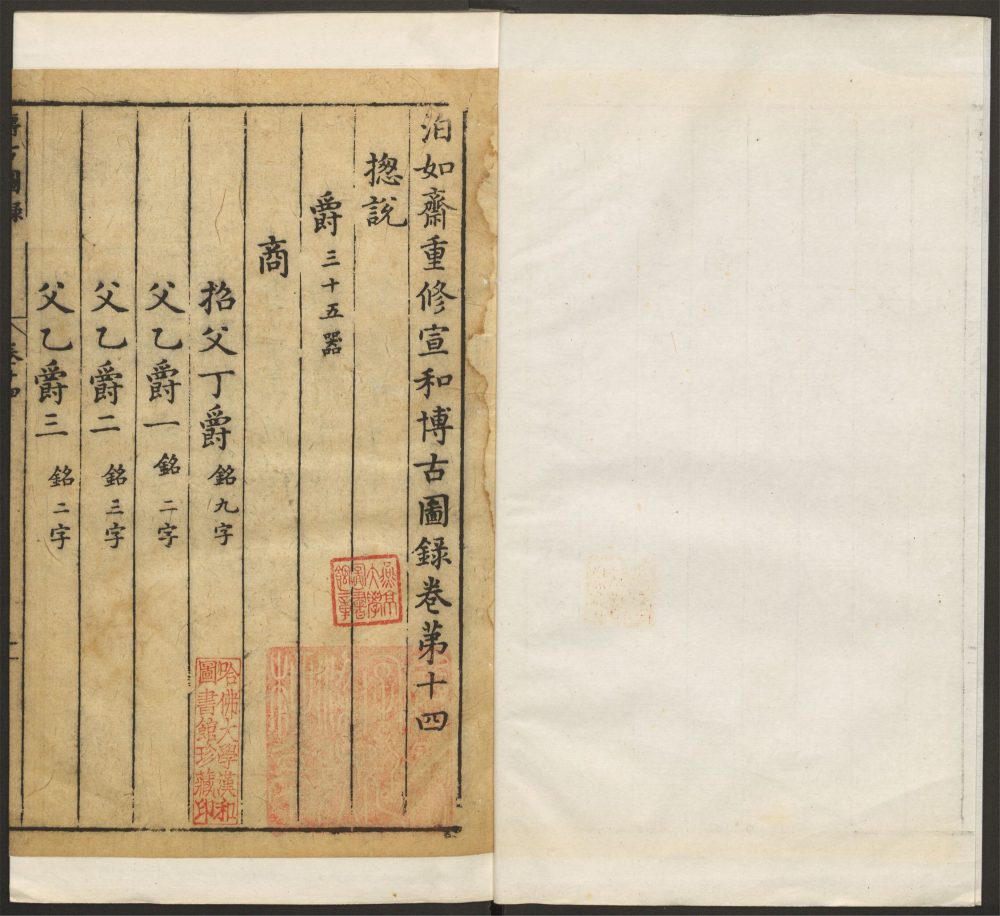 泊如齋重修宣和博古圖錄卷第十四
揔說
爵三十五器
商
招父丁爵銘九字
父乙爵一銘二字
父乙爵二銘三字
父乙爵三銘二字
博古圖錄 卷十四
燕京大學圖書館章
哈佛大學漢和圖書館珍藏印